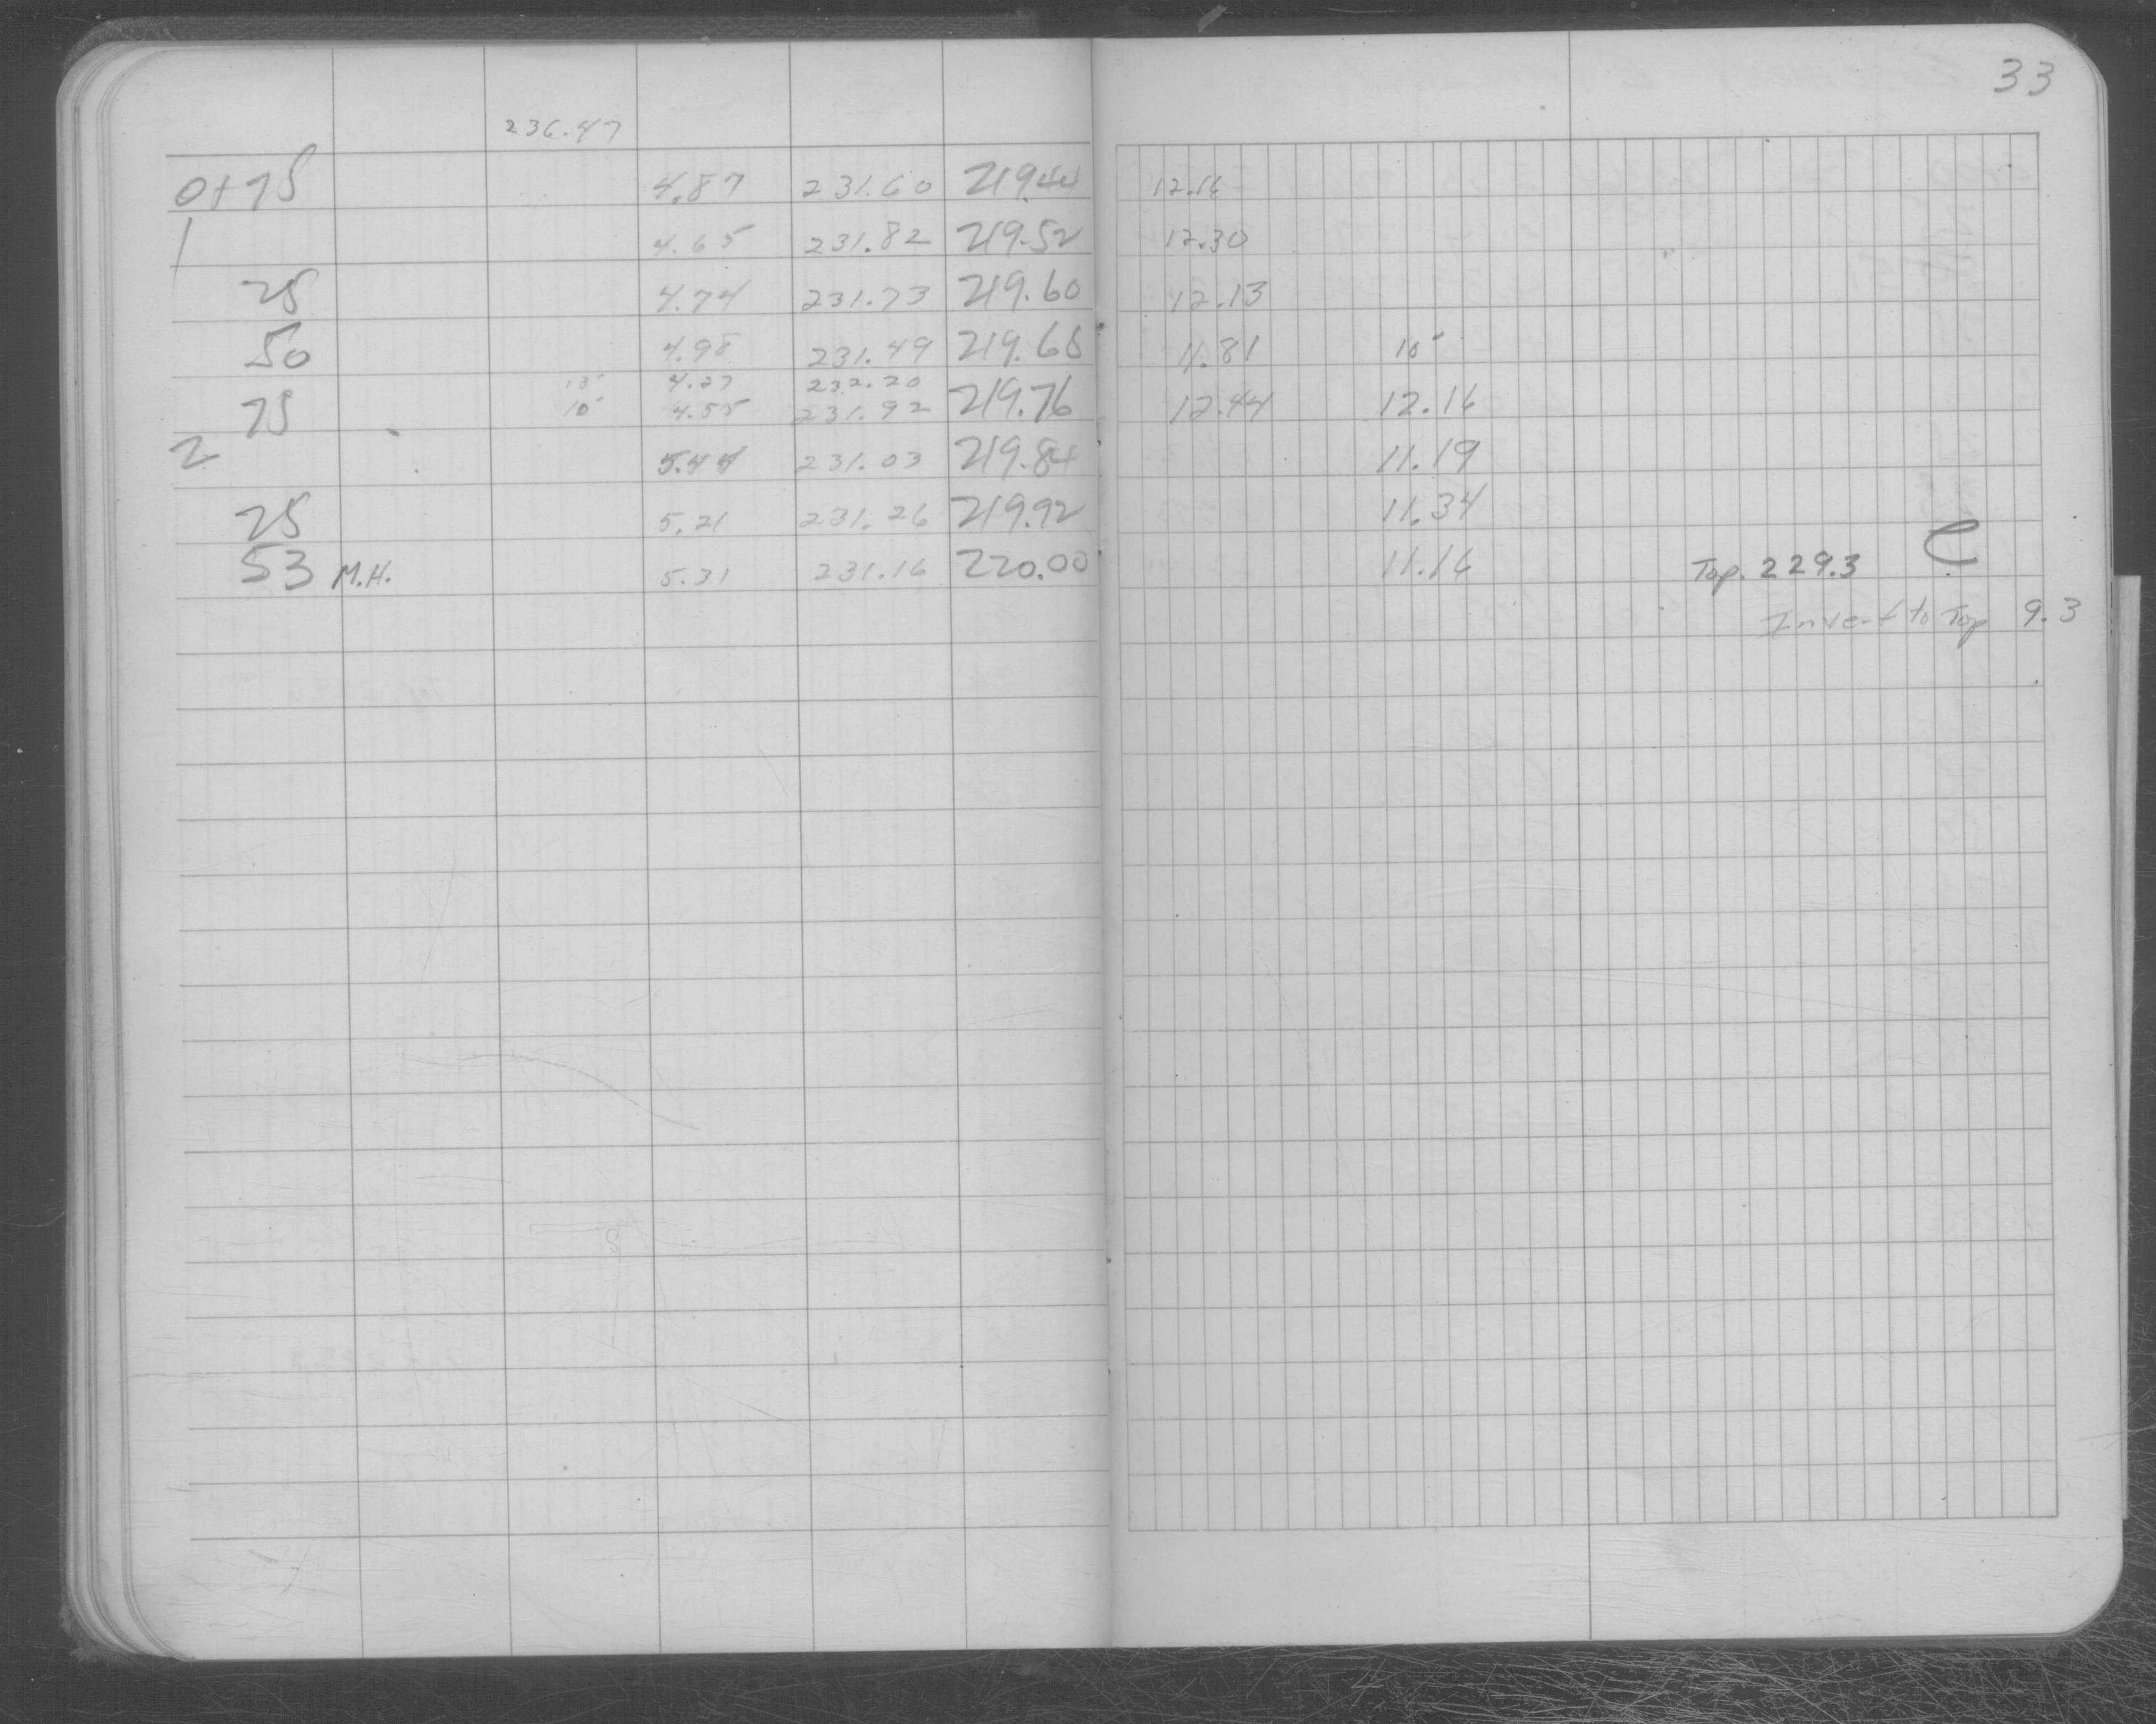 33
236.47
0+75 4.87 231.60 219.44 12.16
1 4.65 231.82 219.52 12.30
25 4.74 231.73 219.60 12.13
50 4.98 231.49 219.68 11.81 10'
13' 4.27 232.20
75 10' 4.55 231.92 219.76 12.44 12.16
2 5.44 231.03 219.84 11.19
25 5.21 231.26 219.92 11.34
53 M.H. 5.31 231.16 220.00 11.16 Top. 229.3
Invert to Top 9.3